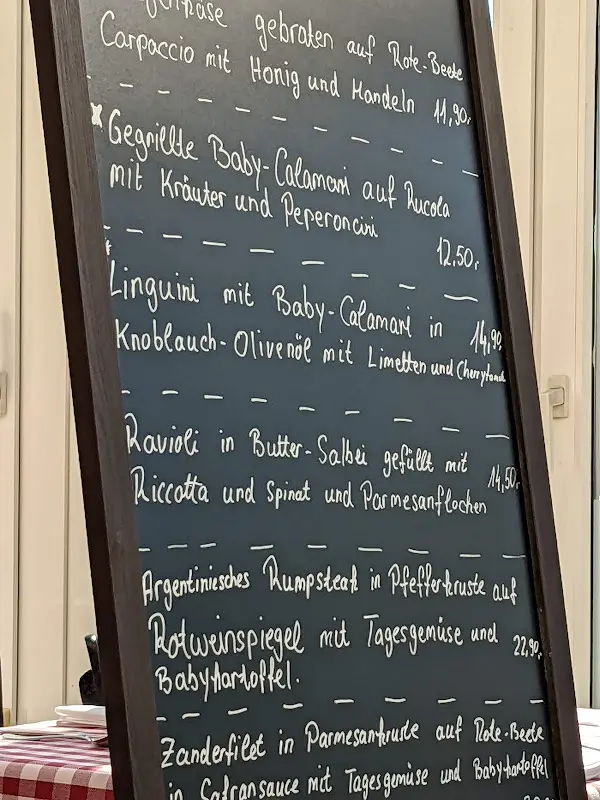 gebraten auf Rote-Beete
Carpaccio mit Honig und Mandeln 11,90,
Gegrillte Baby-Calamari auf Rucola
mit Kräuter und Peperoncini
12,50,
Linguini mit Baby-Calamari in 14,90
Knoblauch-Olivenöl mit Limetten und Cherrytomat
Ravioli in Butter-Salbei gefüllt mit
Riccotta und Spinat und Parmesanflocken 14,50,
Argentinisches Rumpsteak in Pfefferkruste auf
Rotweinspiegel mit Tagesgemüse und 22,90,
Babykartoffel.
Zanderfilet in Parmesankruste auf Rote-Beete
in Safransauce mit Tagesgemüse und Babykartoffel